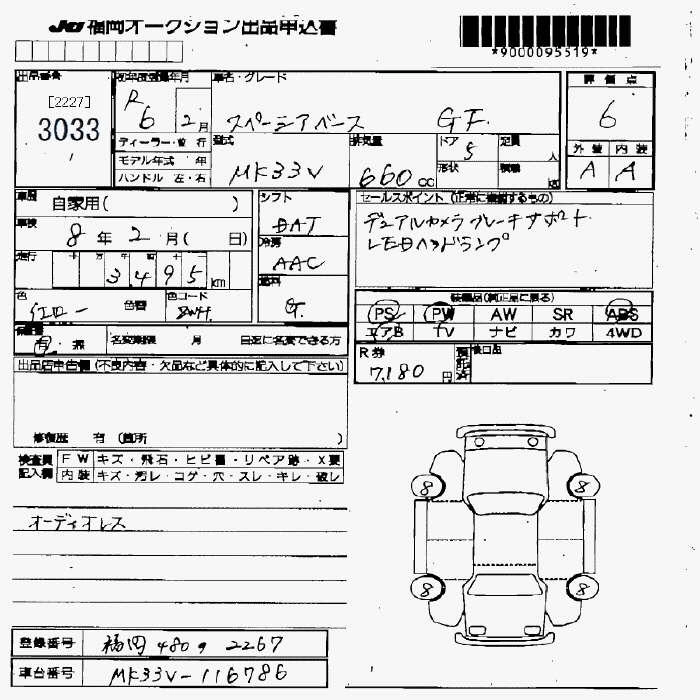 JU 福岡オークション出品申込書
*9000095519*
出品番号
[2227]
3033
初年度登録年月
R
6 2月
車名・グレード
スペーシアベース GF
評価点
6
外装 内装
A A
ディーラー・並行
モデル年式 年
ハンドル 左・右
型式
MK33V
排気量
660cc
ドア
5
形状
定員
人
積載
車歴
自家用( )
車検
8年 2月( 日)
走行
十 万 千 百 十
3,495 km
色
イエロー
色替
色コード
シフト
DAT
冷房
AAC
燃料
G
セールスポイント(正常に機能するもの)
デュアルカメラブレーキサポート
LEDヘッドランプ
装備品(純正品に限る)
PS PW AW SR ABS
エアB TV ナビ カワ 4WD
R券
7,180円
後日品
保証書
有・無
名変期限 月 日迄に名変できる方
出品店申告欄(不良内容・欠品など具体的に記入して下さい)
修復歴 有(箇所 )
検査員
記入欄
FW キズ・飛石・ヒビ割・リペア跡・X要
内装 キズ・汚レ・コゲ・穴・スレ・キレ・破レ
オーディオレス
8 8
8 8
登録番号 福岡 480 り 2267
車台番号 MK33V-116786